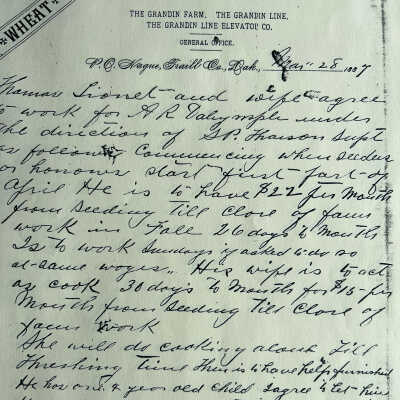 WHEAT
THE GRANDIN FARM, THE GRANDIN LINE,
THE GRANDIN LINE ELEVATOR CO.
GENERAL OFFICE.
P.O. Mayville, Traill Co., Dak., Mar 28 1887
Thomas and wife agree
to work for A R Dalrymple under
the direction of Supt
as follows Commencing when seeders
or harrows start first part of
April He is to have $22 per Month
from seeding till Close of farm
work in Fall 26 days to Month
Is to work Sundays if asked to do so
at same wages. His wife is to act
as cook 30 days to Month for $15 per
Month from seeding till Close of
farm work
She will do cooking alone till
Threshing Time then is to have help furnished
He has one 4 year old child I agree to let him